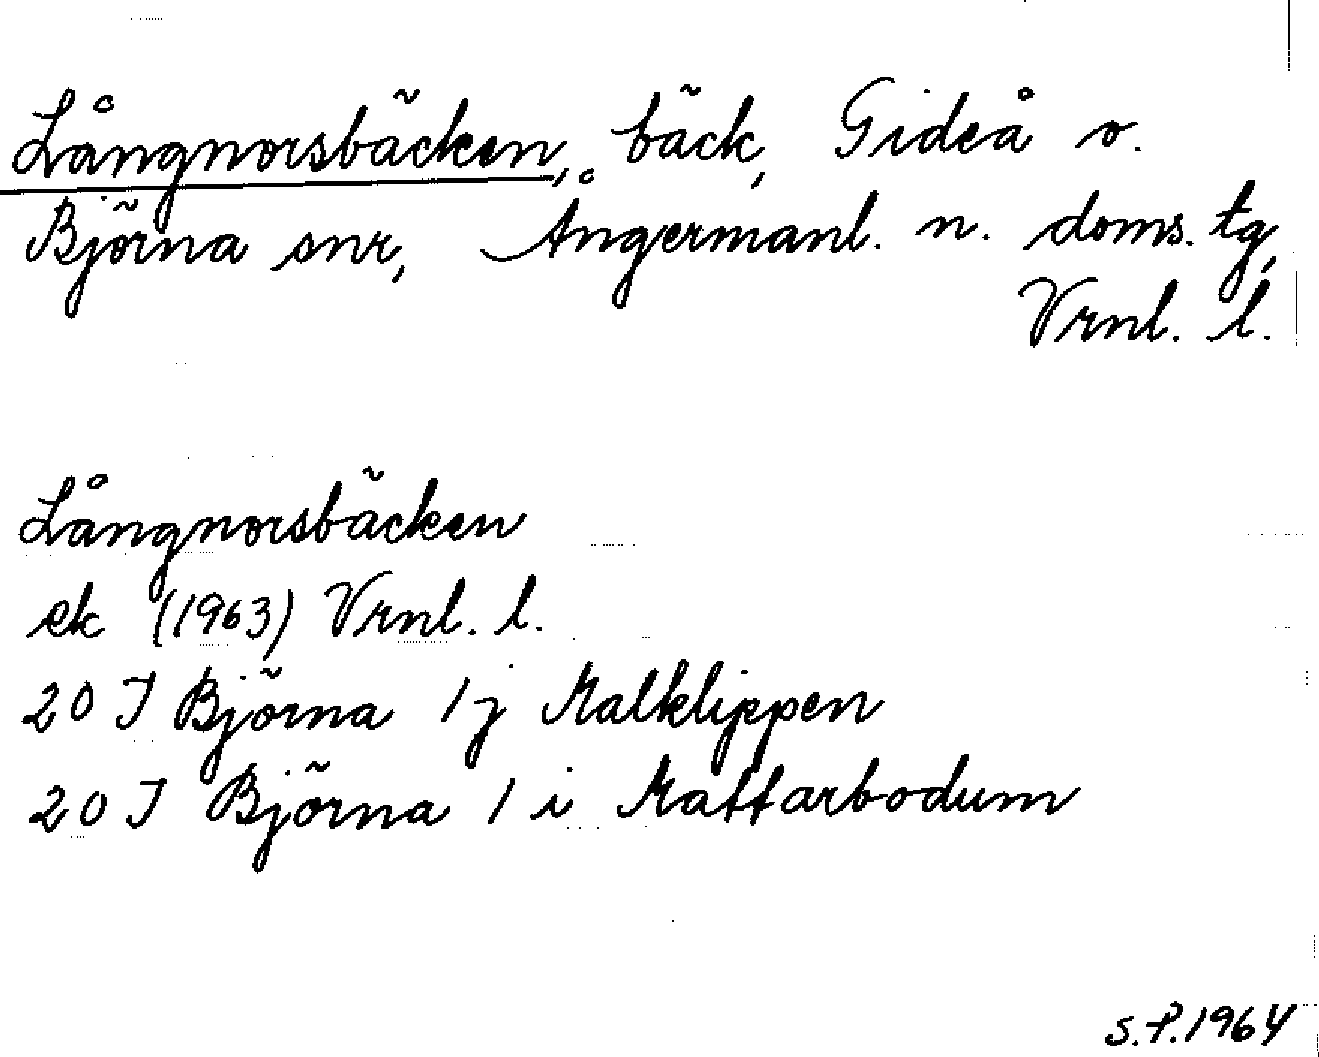 Långnorsbäcken, bäck, Gideå o.
Björna snr, Ångermanl. n. doms. tg,
Vrnl. l.
Långnorsbäcken
ek (1963) Vrnl. l.
20 I Björna 1 j Kalklippen
20 I Björna 1 i Kattarbodum
S.P. 1964